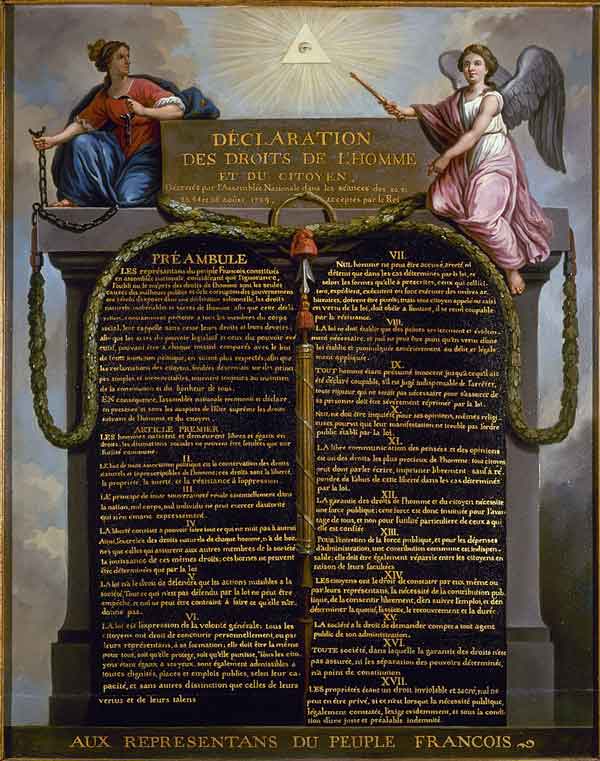 DÉCLARATION
DES DROITS DE L'HOMME
ET DU CITOYEN,
Décretés par l'Assemblée Nationale dans les séances des 20, 21
23, 24 et 26 Août 1789, acceptés par le Roi
PRÉAMBULE
LES représentans du peuple François, constitués
en assemblée nationale, considérant que l'ignorance,
l'oubli ou le mépris des droits de l'homme sont les seules
causes des malheurs publics et de la corruption des gouvernemens
ont résolu d'exposer dans une déclaration solemnelle, les droits
naturels, inaliénables et sacrés de l'homme; afin que cette décla-
ration, constamment présente à tous les membres du corps
social, leur rappelle sans cesse leurs droits et leurs devoirs;
afin que les actes du pouvoir législatif et ceux du pouvoir exé-
cutif, pouvant être à chaque instant comparés avec le but
de toute institution politique, en soient plus respectés; afin que
les réclamations des citoyens, fondées désormais sur des princi-
pes simples et incontestables, tournent toujours au maintien
de la constitution et du bonheur de tous;
EN conséquence, l'assemblée nationale reconnoit et déclare
en presence et sous les auspices de l'Etre suprême les droits
suivans de l'homme et du citoyen.
ARTICLE PREMIER
LES hommes naissent et demeurent libres et égaux en
droits; les distinctions sociales ne peuvent être fondées que sur
l'utilité commune.
II.
LE but de toute association politique est la conservation des droits
naturels et imprescriptibles de l'homme; ces droits sont la liberté,
la propriété, la sureté, et la résistance à l'oppression.
III.
LE principe de toute souveraineté réside essentiellement dans
la nation, nul corps, nul individu ne peut exercer d'autorité
qui n'en émane expressément.
IV.
LA liberté consiste à pouvoir faire tout ce qui ne nuit pas à autrui
Ainsi, l'exercice des droits naturels de chaque homme, n'a de bor-
nes que celles qui assurent aux autres membres de la société
la jouissance de ces mêmes droits; ces bornes ne peuvent
être déterminées que par la loi
V.
LA loi n'a le droit de défendre que les actions nuisibles à la
société. Tout ce qui n'est pas défendu par la loi ne peut être
empêché, et nul ne peut être contraint à faire ce qu'elle n'or-
donne pas.
VI.
LA loi est l'expression de la volonté générale; tous les
citoyens ont droit de concourir personnellement, ou par
leurs représentans, à sa formation; elle doit être la même
pour tous, soit qu'elle protege, soit qu'elle punisse. Tous les citoy-
ens étant égaux à ses yeux, sont également admissibles à
toutes dignités, places et emplois publics, selon leur ca-
pacité, et sans autres distinction que celles de leurs
vertus et de leurs talens
VII.
NUL homme ne peut être accusé, arreté ni
détenu que dans les cas déterminés par la loi, et
selon les formes qu'elle à prescrites, ceux qui sollici-
tent, expédient, exécutent ou font exécuter des ordres ar-
bitraires, doivent être punis; mais tout citoyen appelé ou saisi
en vertu de la loi, doit obéir a l'instant, il se rend coupable
par la résistance.
VIII.
LA loi ne doit établir que des peines strictement et évidem-
ment nécessaire, et nul ne peut être puni qu'en vertu d'une
loi établie et promulguée antérierement au délit et légale-
ment appliquée.
IX.
TOUT homme étant présumé innocent jusqu'à ce qu'il ait
été déclaré coupable, s'il est jugé indispensable de l'arrêter,
toute rigueur qui ne seroit pas nécessaire pour s'assurer de
sa personne doit être sévèrement réprimée par la loi.
X.
NUL ne doit être inquiété pour ses opinions, mêmes religi-
euses pourvu que leur manifestation ne trouble pas l'ordre
public établi par la loi.
XI.
LA libre communication des pensées et des opinions
est un des droits les plus precieux de l'homme: tout citoyen
peut donc parler écrire, imprimer librement: sauf à ré-
pondre de l'abus de cette liberté dans les cas déterminés
par la loi.
XII.
LA garantie des droits de l'homme et du citoyen nécessite
une force publique; cette force est donc instituée pour l'avan-
tage de tous, et non pour l'utilité particuliere de ceux à qui
elle est confiée
XIII.
POUR l'entretien de la force publique, et pour les dépenses
d'administration, une contribution commune est indispen-
sable; elle doit être également répartie entre les citoyens en
raison de leurs facultées
XIV.
LES citoyens ont le droit de constater par eux même ou
par leurs représentans, la nécessité de la contribution pub-
lique, de la consentir librement, d'en suivre l'emploi, et d'en
déterminer la quotité, l'assiette, le recouvrement et la durée.
XV.
LA société a le droit de demander compte a tout agent
public de son administration.
XVI.
TOUTE société, dans laquelle la garantie des droits n'est
pas assurée, ni les séparation des pouvoirs déterminée,
n'a point de constitution
XVII.
LES propriétés étant un droit inviolable et sacré, nul ne
peut en être privé, si ce n'est lorsque la nécessité publique,
légalement constatée, l'exige evidemment, et sous la condi-
tion d'une juste et préalable indemnité.
AUX REPRESENTANS DU PEUPLE FRANCOIS